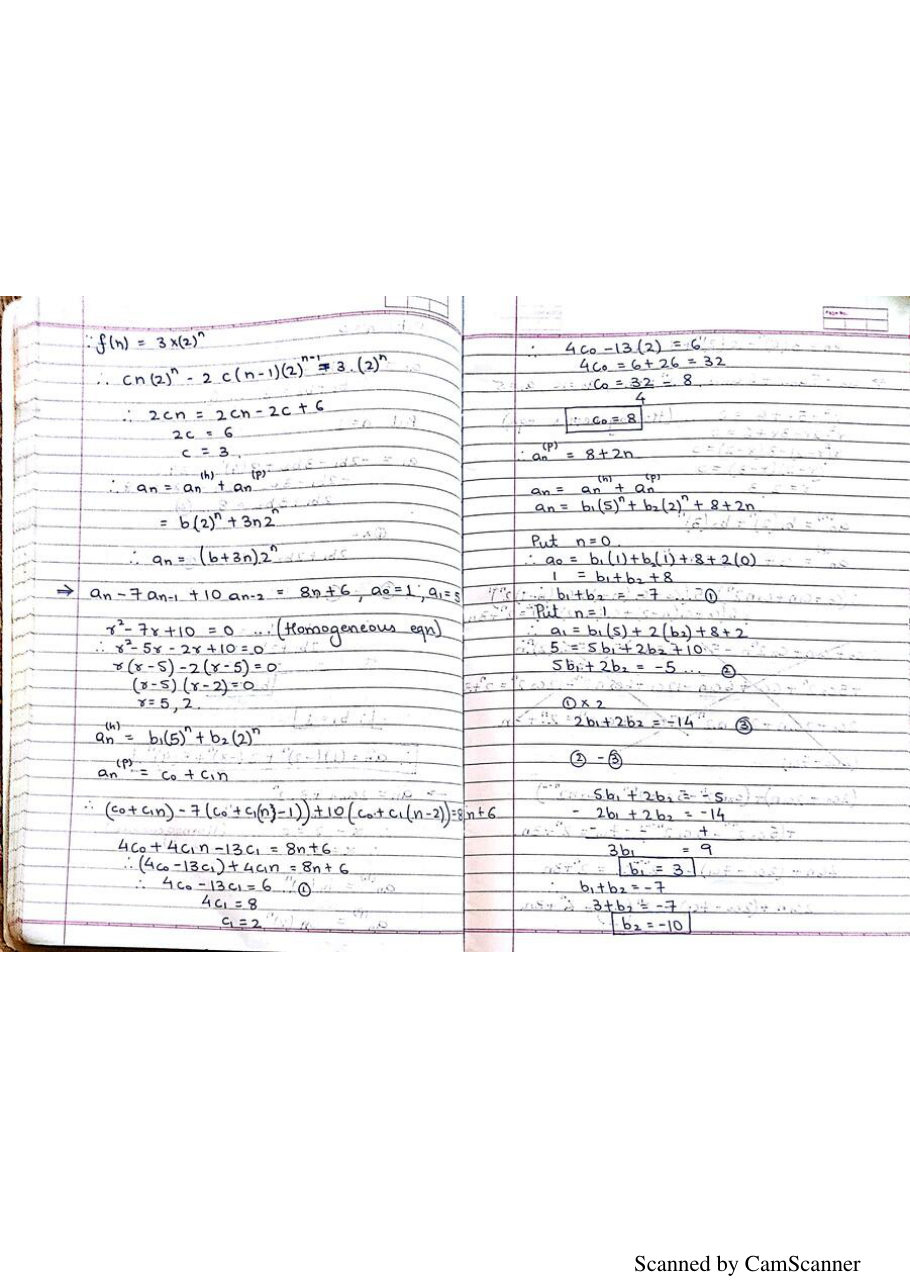 ∴ f(n) = 3×(2)ⁿ
∴ cn(2)ⁿ - 2 c(n-1)(2)ⁿ⁻¹ = 3.(2)ⁿ
∴ 2cn = 2cn - 2c + 6
2c = 6
c = 3.
∴ an = an⁽ʰ⁾ + an⁽ᵖ⁾
= b(2)ⁿ + 3n2ⁿ
∴ an = (b+3n)2ⁿ
⇒ an - 7an-1 + 10 an-2 = 8n+6, a0=1, a1=5
r² - 7r + 10 = 0 ... (Homogeneous eqn)
∴ r² - 5r - 2r + 10 = 0
r(r-5) - 2(r-5) = 0
(r-5)(r-2) = 0
r = 5, 2.
an⁽ʰ⁾ = b1(5)ⁿ + b2(2)ⁿ
an⁽ᵖ⁾ = c0 + c1n
∴ (c0+c1n) - 7(c0+c1(n}-1)) + 10(c0+c1(n-2)) = 8n+6
4c0 + 4c1n - 13c1 = 8n+6
∴ (4c0-13c1) + 4c1n = 8n+6
∴ 4c0 - 13c1 = 6 ①
4c1 = 8
c1 = 2
∴ 4c0 - 13(2) = 6
4c0 = 6+26 = 32
c0 = 32/4 = 8
c0 = 8
∴ an⁽ᵖ⁾ = 8+2n
an = an⁽ʰ⁾ + an⁽ᵖ⁾
an = b1(5)ⁿ + b2(2)ⁿ + 8 + 2n
Put n=0.
∴ a0 = b1(1) + b2(1) + 8 + 2(0)
1 = b1+b2+8
∴ b1+b2 = -7 ... ①
Put n=1
∴ a1 = b1(5) + 2(b2) + 8 + 2
5 = 5b1 + 2b2 + 10
5b1 + 2b2 = -5 ... ②
① × 2
2b1 + 2b2 = -14 ③
② - ③
5b1 + 2b2 = -5
- 2b1 + 2b2 = -14
- - +
3b1 = 9
b1 = 3
∴ b1+b2 = -7
3+b2 = -7
b2 = -10
Scanned by CamScanner